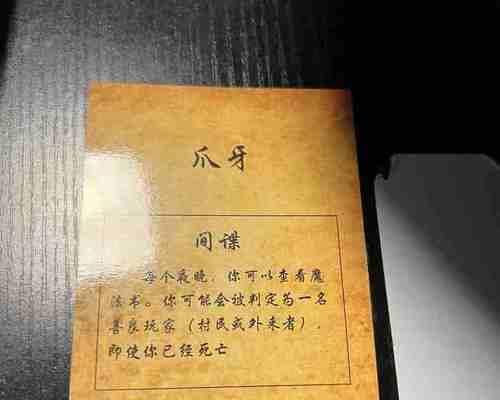 爪牙
间谍
每个夜晚，你可以查看魔
法书。你可能会被判定为一名
善良玩家（村民或外来者），
即使你已经死亡